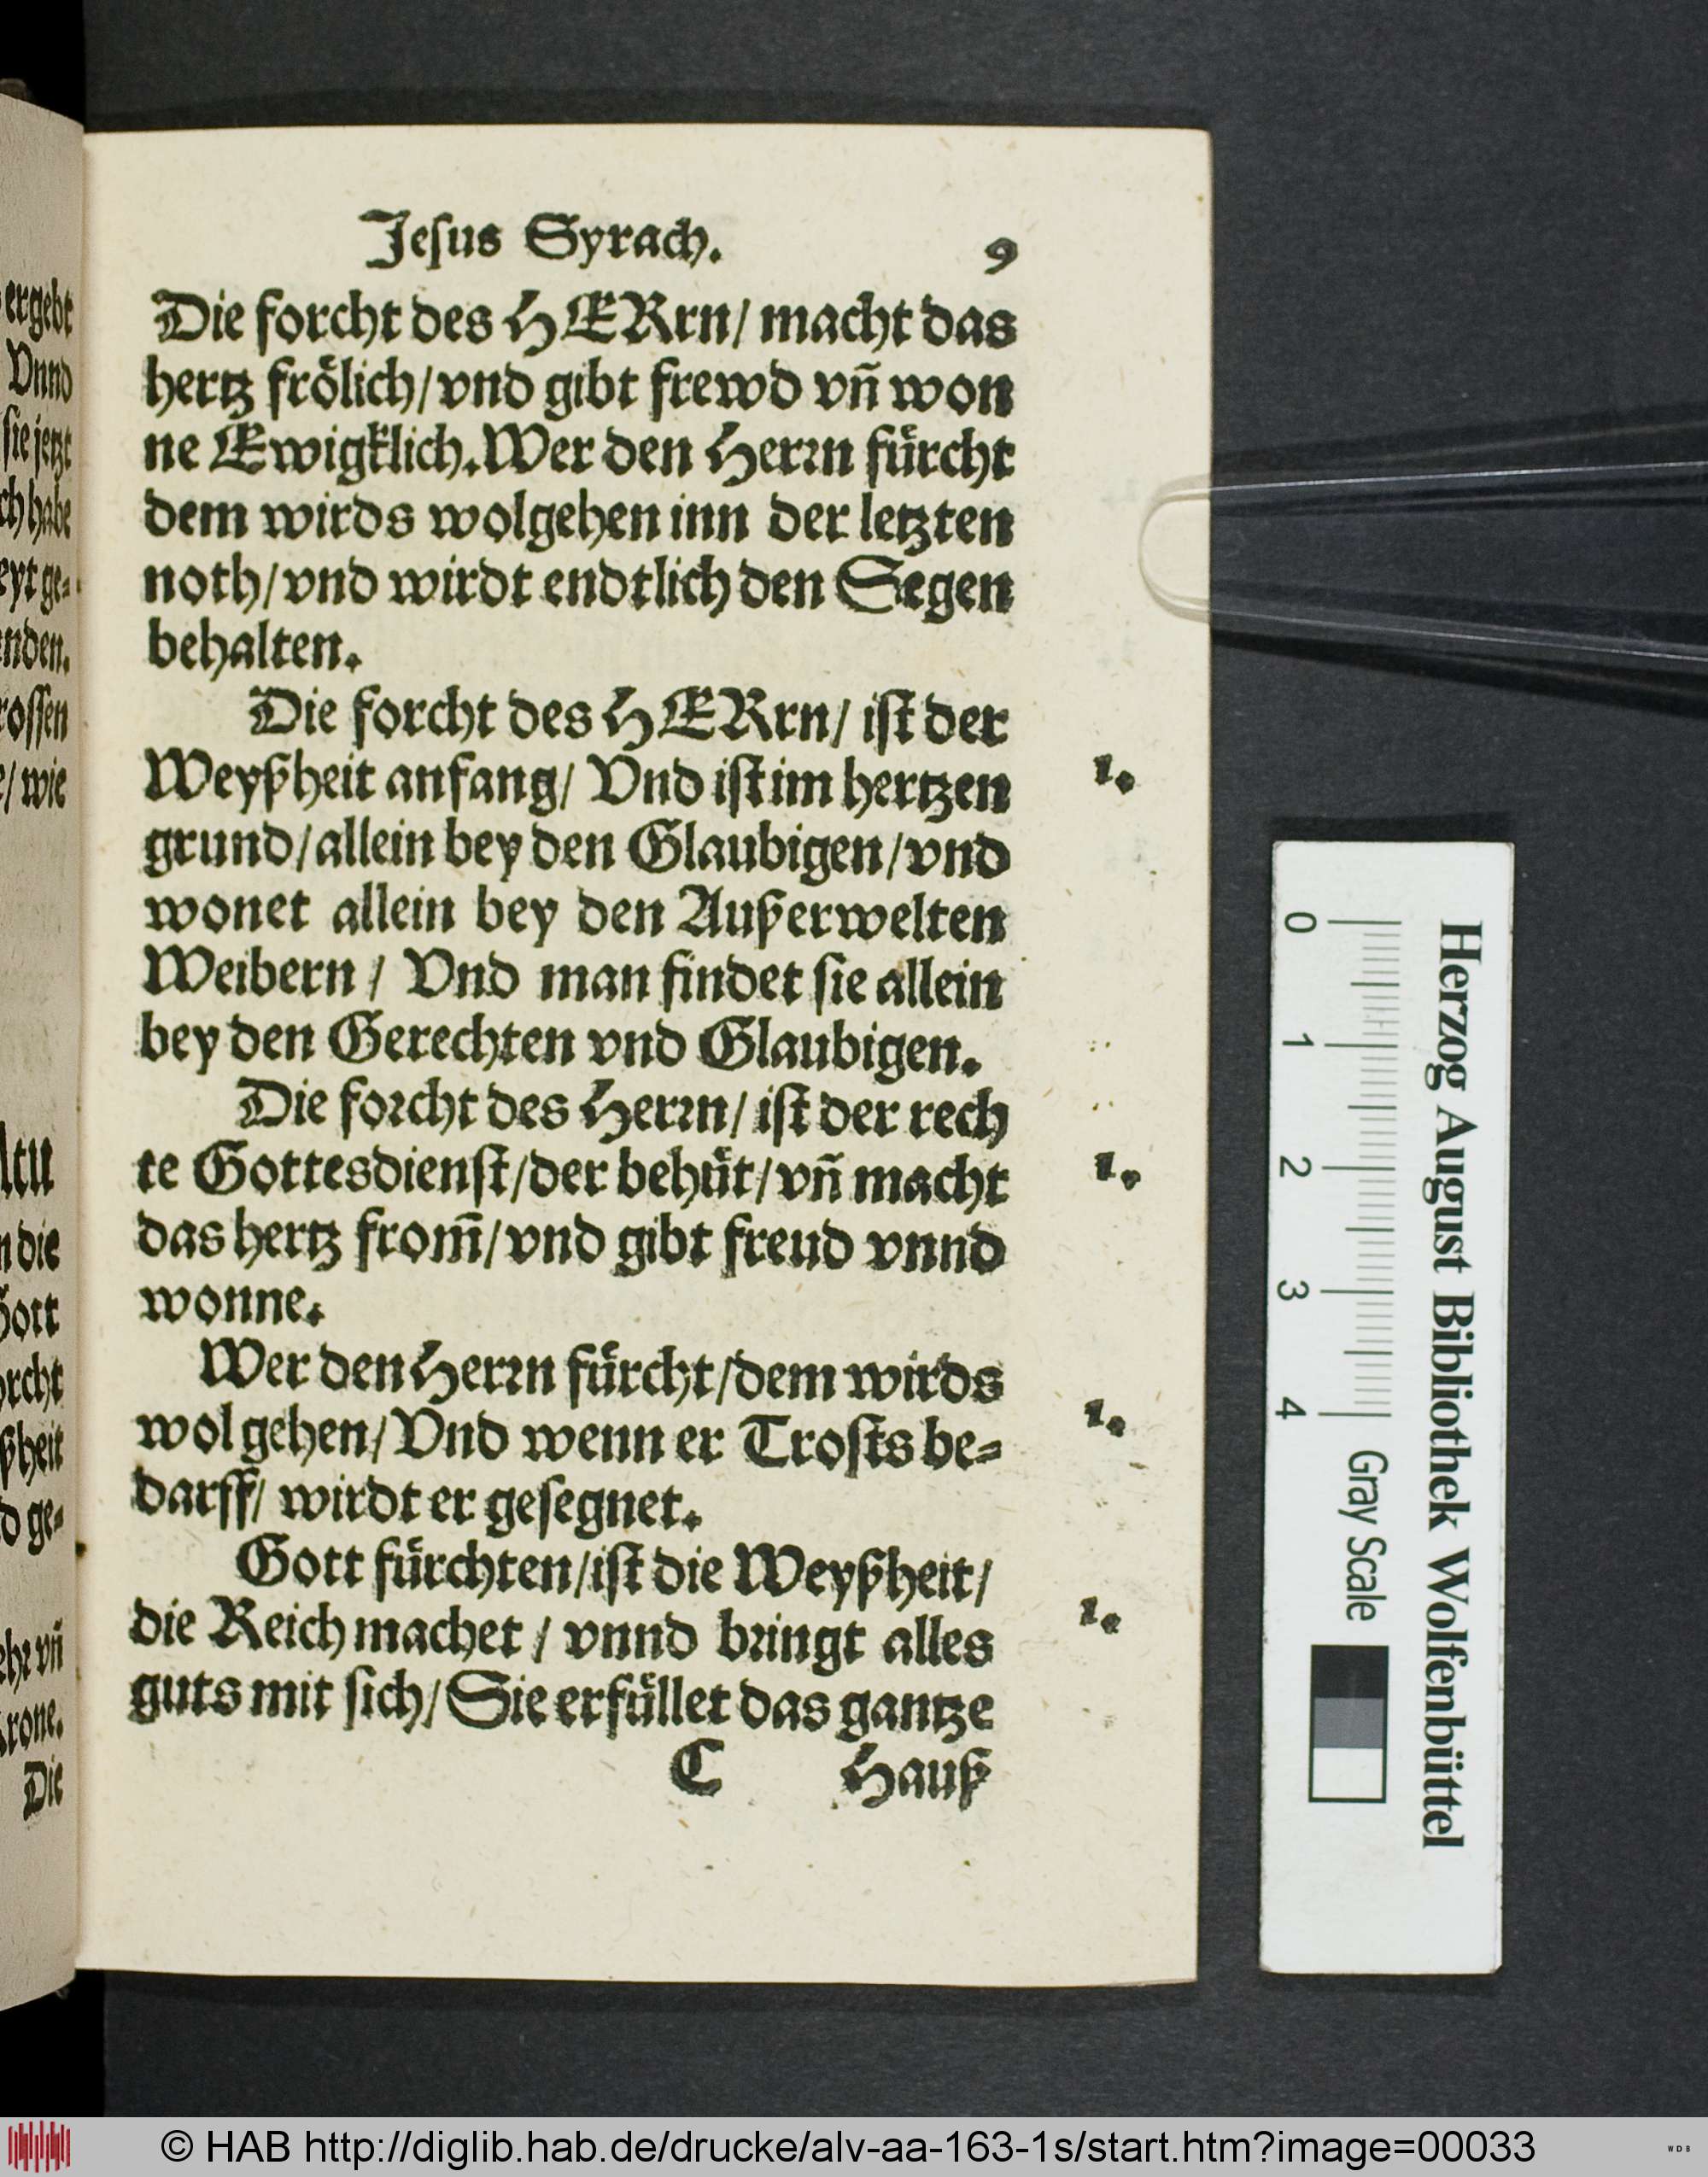 Jeſus Syrach. 9
Die forcht des HERrn/ macht das
hertz froͤlich/vnd gibt frewd vñ won
ne Ewigklich.Wer den Herꝛn fuͤrcht
dem wirds wolgehen inn der letzten
noth/vnd wirdt endtlich den Segen
behalten.
Die forcht des HERrn/ iſt der
Weyßheit anfang/ Vnd iſt im hertzen 1.
grund/allein bey den Glaubigen/vnd
wonet allein bey den Außerwelten
Weibern / Vnd man findet ſie allein
bey den Gerechten vnd Glaubigen.
Die foꝛcht des Herꝛn/ iſt der rech
te Gottesdienſt/der behuͤt/vñ macht 1.
das hertz from̃/vnd gibt freud vnnd
wonne.
Wer den Herꝛn fuͤrcht/dem wirds
wol gehen/Vnd wenn er Troſts be⸗ 1.
darff/ wirdt er geſegnet.
Gott fuͤrchten/iſt die Weyßheit/
die Reich machet / vnnd bꝛingt alles 1.
guts mit ſich/Sie erfuͤllet das gantze
C Hauß
ergebt
Vnnd
ſie jetzt
ch habe
eyt ge⸗
nden.
roſſen
e/ wie
n die
Gott
orcht
ßheit
d ge⸗
ehꝛ vñ
Krone.
Die
Herzog August Bibliothek Wolfenbüttel
0 1 2 3 4 Gray Scale
© HAB http://diglib.hab.de/drucke/alv-aa-163-1s/start.htm?image=00033
WDB